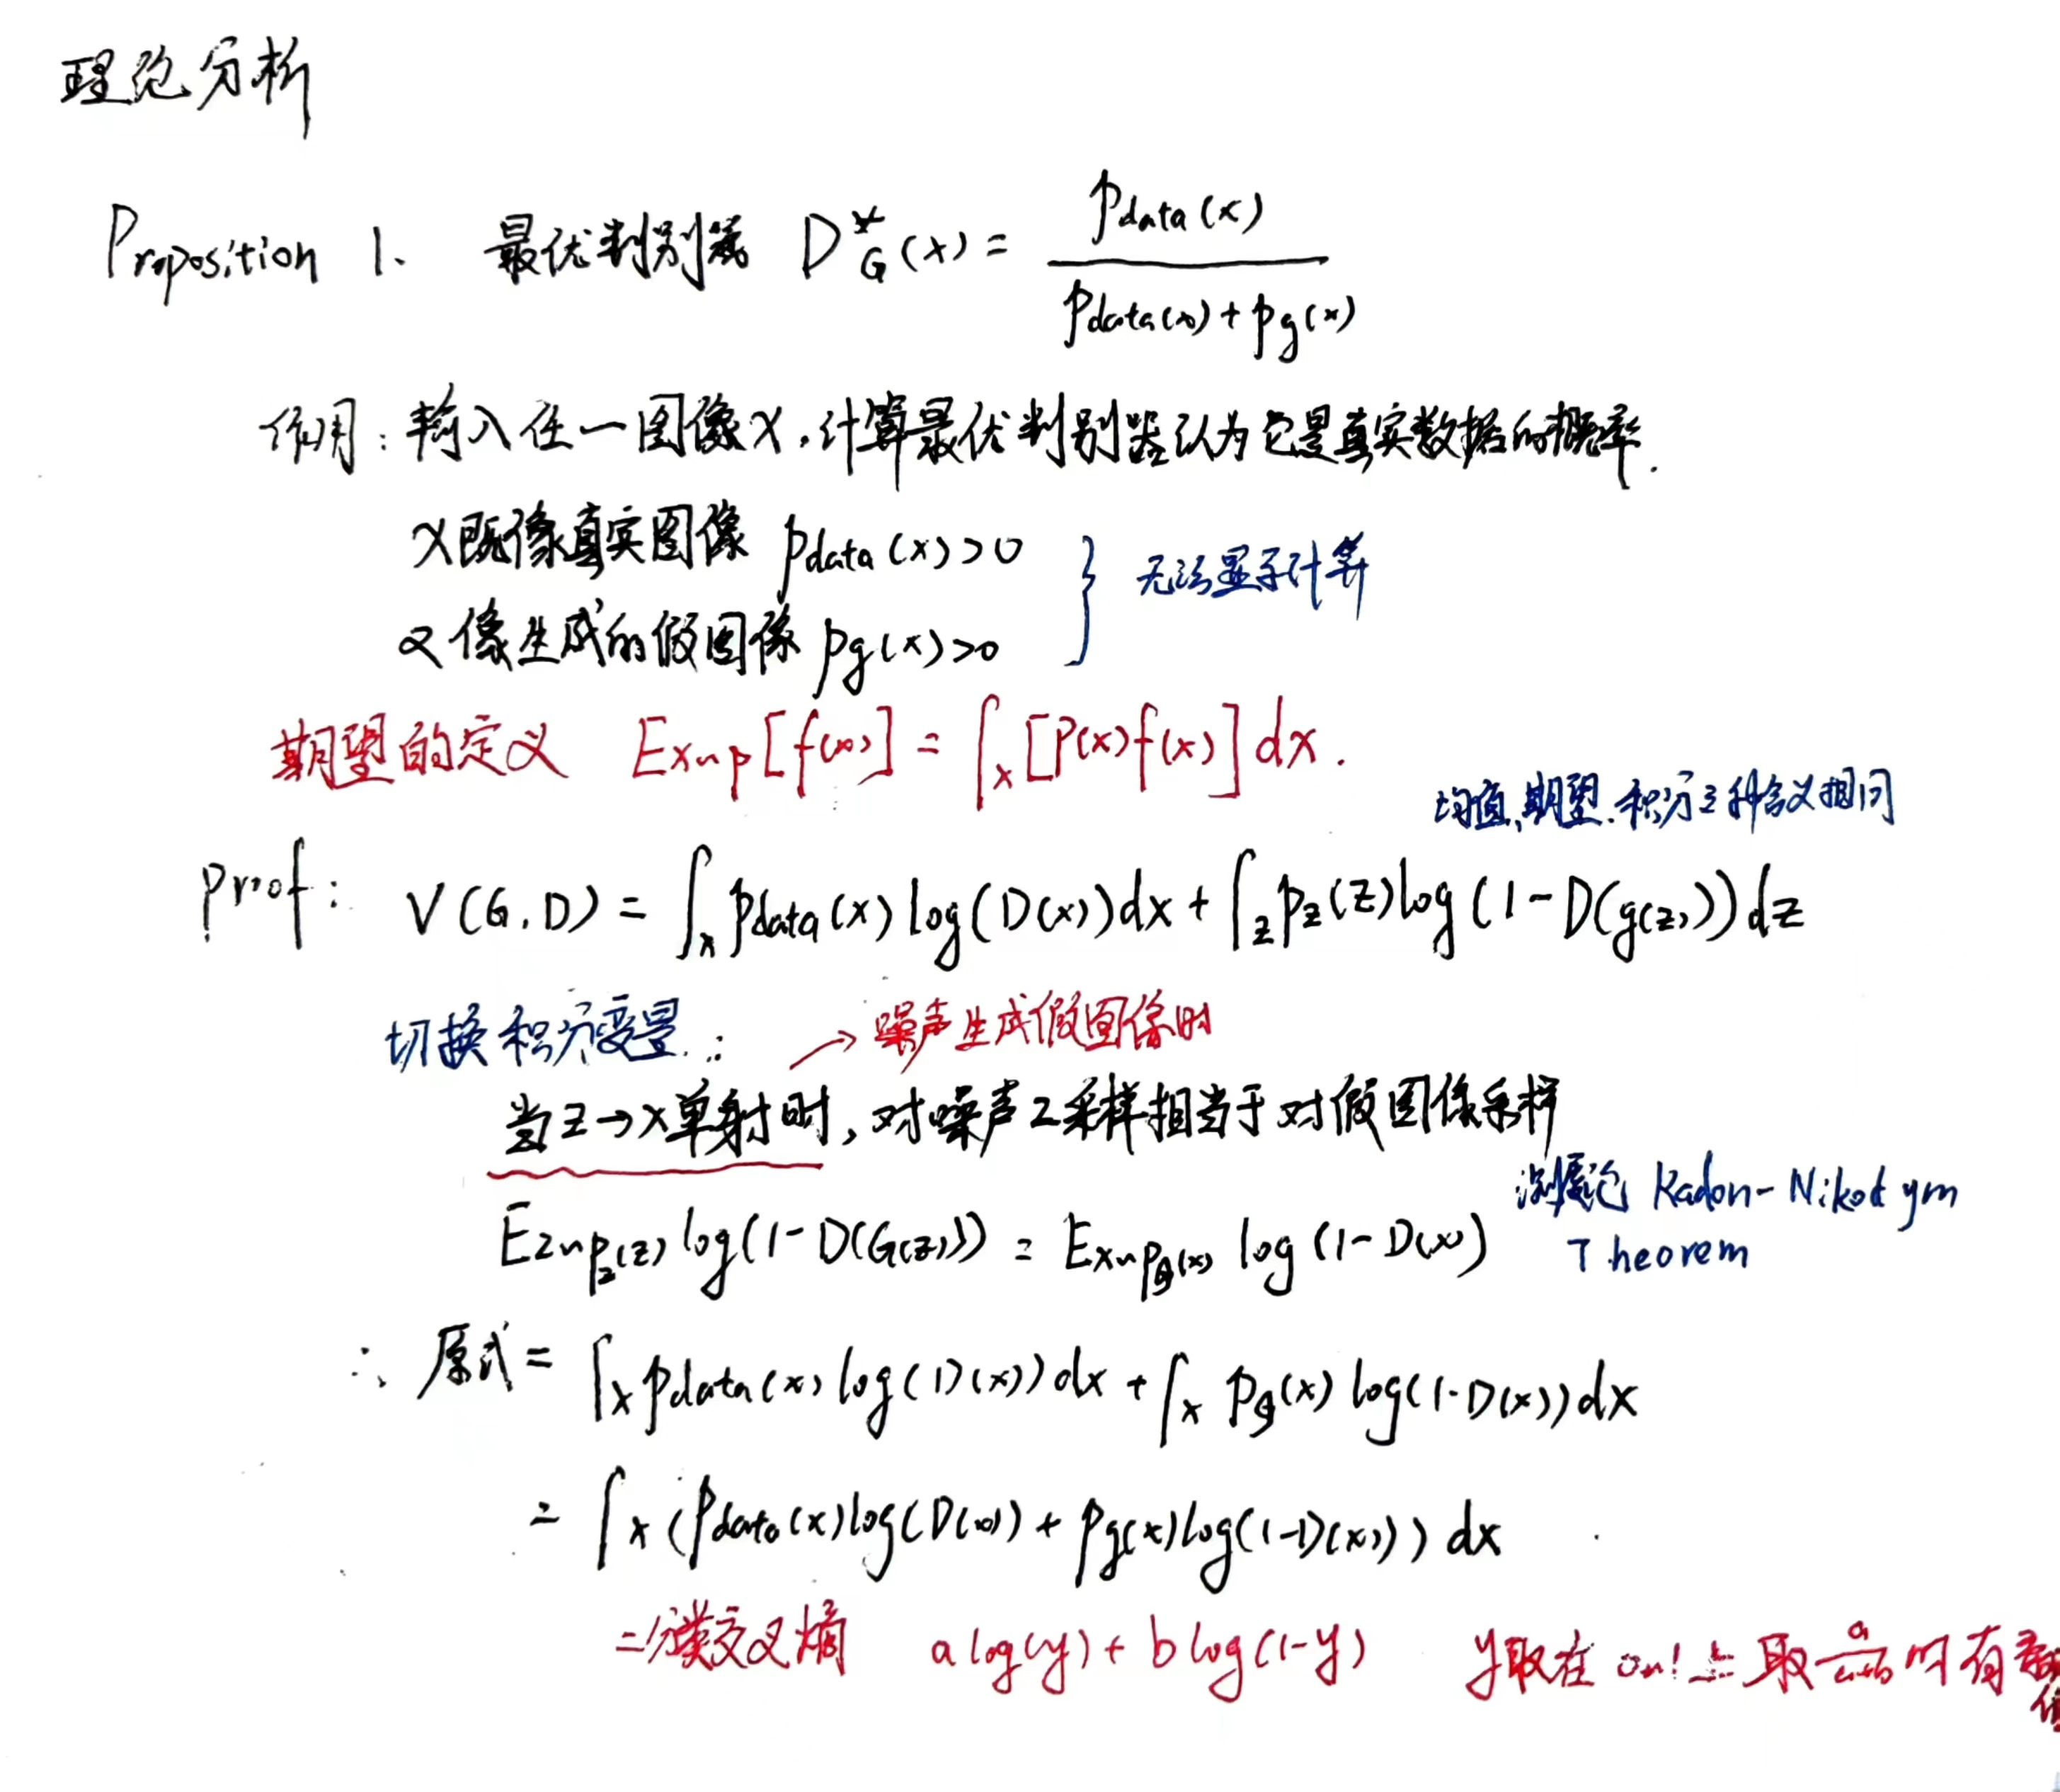 理论分析
Proposition 1、 最优判别器 D*_G(x) = pdata(x) / (pdata(x) + pg(x))
作用：输入任一图像X，计算最优判别器认为它是真实数据的概率.
X既像真实图像 pdata(x)>0
又像生成的假图像 pg(x)>0
} 无法显示计算
期望的定义 E_{x~p}[f(x)] = ∫_x [P(x)f(x)] dx.
均值、期望、积分三种含义相同
proof： V(G,D) = ∫_x pdata(x) log(D(x))dx + ∫_z pz(z) log(1-D(g(z)))dz
切换积分变量：
→ 噪声生成假图像时
当z→x单射时，对噪声z采样相当于对假图像采样
E_{z~pz(z)} log(1-D(G(z))) = E_{x~pg(x)} log(1-D(x))
测度论 Radon-Nikodym
Theorem
∴ 原式 = ∫_x pdata(x) log(D(x))dx + ∫_x pg(x) log(1-D(x))dx
= ∫_x (pdata(x)log(D(x)) + pg(x)log(1-D(x))) dx
二分类交叉熵 a log(y) + b log(1-y) y取在 0~1上 取 a/(a+b) 时有最大值